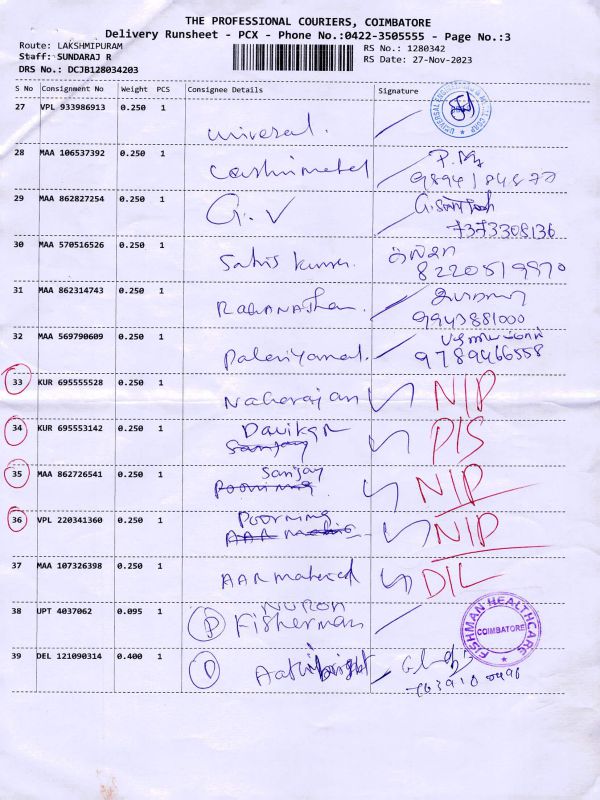 THE PROFESSIONAL COURIERS, COIMBATORE
Delivery Runsheet - PCX - Phone No.:0422-3505555 - Page No.:3
Route: LAKSHMIPURAM
RS No.: 1280342
Staff: SUNDARAJ R
RS Date: 27-Nov-2023
DRS No.: DCJB128034203
S No Consignment No Weight PCS Consignee Details Signature
27 VPL 933986913 0.250 1 universal.
28 MAA 106537392 0.250 1
9894184870
29 MAA 862827254 0.250 1 G.V
7373308136
30 MAA 570516526 0.250 1 Satis kumar.
8220519970
31 MAA 862314743 0.250 1
9943881000
32 MAA 569790609 0.250 1
9789466558
33 KUR 695555528 0.250 1 NIP
34 KUR 695553142 0.250 1 Sanjay PIS
35 MAA 862726541 0.250 1 Sanjay NIP
36 VPL 220341360 0.250 1 NIP
37 MAA 107326398 0.250 1 AAR material DIL
38 UPT 4037062 0.095 1 P NURON Fisherman
FISHMAN HEALTHCARE
COIMBATORE
39 DEL 121090314 0.400 1